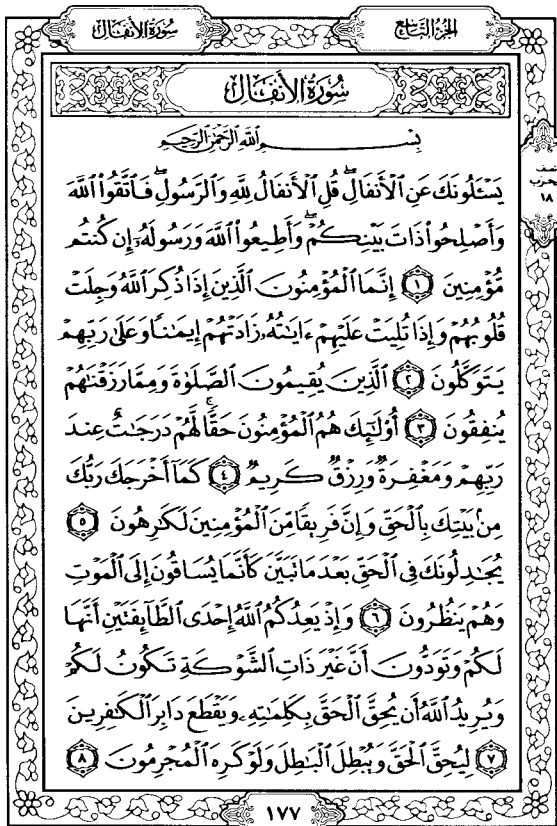 سُورَةُ الأَنفَالِ
الجُزْءُ التَّاسِعُ
سُورَةُ الأَنفَالِ
بِسْمِ اللَّهِ الرَّحْمَٰنِ الرَّحِيمِ
نصف
الحزب
١٨
يَسْـَٔلُونَكَ عَنِ ٱلْأَنفَالِۖ قُلِ ٱلْأَنفَالُ لِلَّهِ وَٱلرَّسُولِۖ فَٱتَّقُوا۟ ٱللَّهَ
وَأَصْلِحُوا۟ ذَاتَ بَيْنِكُمْۖ وَأَطِيعُوا۟ ٱللَّهَ وَرَسُولَهُۥٓ إِن كُنتُم
مُّؤْمِنِينَ ١ إِنَّمَا ٱلْمُؤْمِنُونَ ٱلَّذِينَ إِذَا ذُكِرَ ٱللَّهُ وَجِلَتْ
قُلُوبُهُمْ وَإِذَا تُلِيَتْ عَلَيْهِمْ ءَايَٰتُهُۥ زَادَتْهُمْ إِيمَٰنًا وَعَلَىٰ رَبِّهِمْ
يَتَوَكَّلُونَ ٢ ٱلَّذِينَ يُقِيمُونَ ٱلصَّلَوٰةَ وَمِمَّا رَزَقْنَٰهُمْ
يُنفِقُونَ ٣ أُو۟لَٰٓئِكَ هُمُ ٱلْمُؤْمِنُونَ حَقًّاۚ لَّهُمْ دَرَجَٰتٌ عِندَ
رَبِّهِمْ وَمَغْفِرَةٌ وَرِزْقٌ كَرِيمٌ ٤ كَمَآ أَخْرَجَكَ رَبُّكَ
مِنۢ بَيْتِكَ بِٱلْحَقِّ وَإِنَّ فَرِيقًا مِّنَ ٱلْمُؤْمِنِينَ لَكَٰرِهُونَ ٥
يُجَٰدِلُونَكَ فِى ٱلْحَقِّ بَعْدَ مَا تَبَيَّنَ كَأَنَّمَا يُسَاقُونَ إِلَى ٱلْمَوْتِ
وَهُمْ يَنظُرُونَ ٦ وَإِذْ يَعِدُكُمُ ٱللَّهُ إِحْدَى ٱلطَّآئِفَتَيْنِ أَنَّهَا
لَكُمْ وَتَوَدُّونَ أَنَّ غَيْرَ ذَاتِ ٱلشَّوْكَةِ تَكُونُ لَكُمْ
وَيُرِيدُ ٱللَّهُ أَن يُحِقَّ ٱلْحَقَّ بِكَلِمَٰتِهِۦ وَيَقْطَعَ دَابِرَ ٱلْكَٰفِرِينَ
٧ لِيُحِقَّ ٱلْحَقَّ وَيُبْطِلَ ٱلْبَٰطِلَ وَلَوْ كَرِهَ ٱلْمُجْرِمُونَ ٨
١٧٧